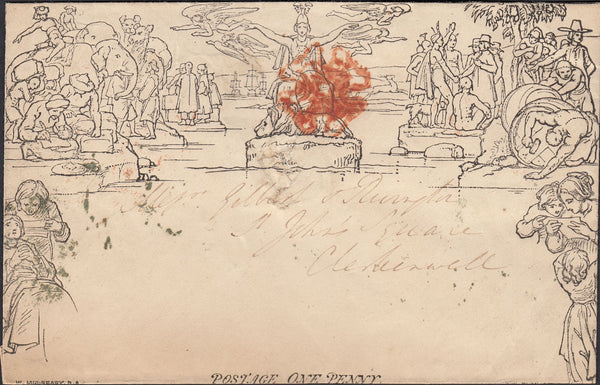 Messrs Gilbert & Rivington
St John's Square
Clerkenwell
W. MULREADY, R.A.
POSTAGE ONE PENNY.